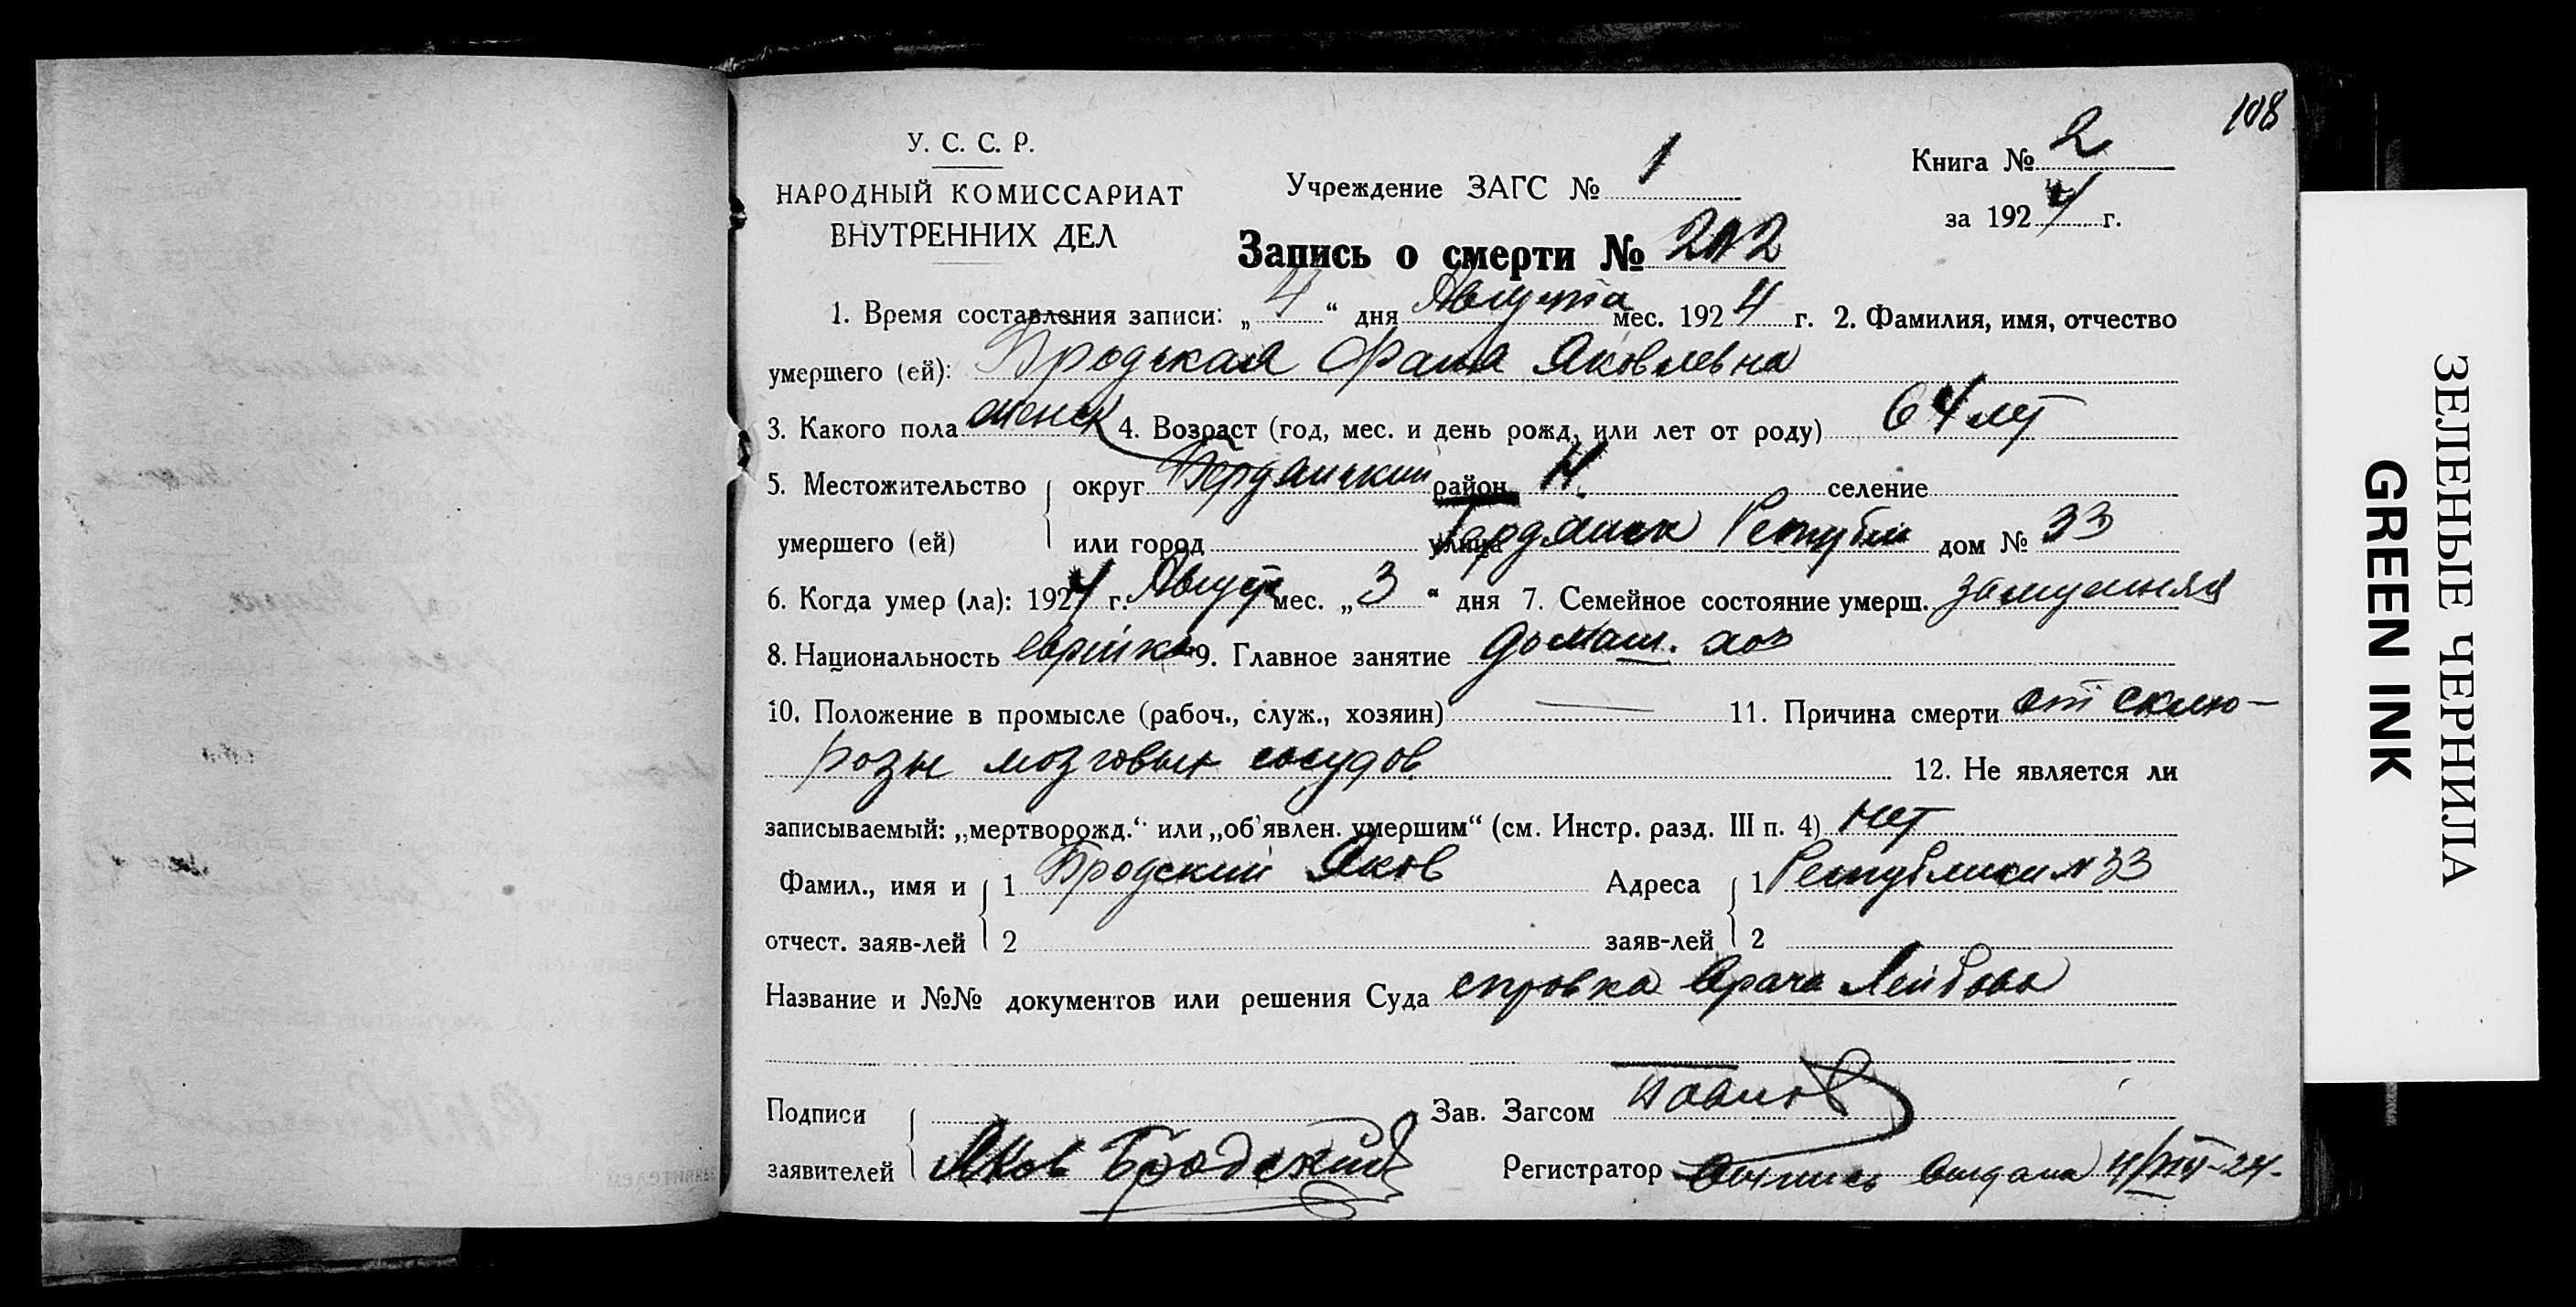 108
У. С. С. Р.
НАРОДНЫЙ КОМИССАРИАТ
ВНУТРЕННИХ ДЕЛ
Учреждение ЗАГС № 1
Книга № 2
за 1924 г.
Запись о смерти № 202
1. Время составления записи: „4“ дня Августа мес. 1924 г. 2. Фамилия, имя, отчество
умершего (ей): Бродская Фаня Яковлевна
3. Какого пола женск 4. Возраст (год, мес. и день рожд. или лет от роду) 64 лет
5. Местожительство округ Бердянский район Н. селение
умершего (ей) или город улица Бердянск Републик дом № 33
6. Когда умер (ла): 1924 г. Август мес. „3“ дня 7. Семейное состояние умерш. замужняя
8. Национальность еврейка 9. Главное занятие домаш. хоз
10. Положение в промысле (рабоч., служ., хозяин) — 11. Причина смерти от склю-
розы мозговых сосудов 12. Не является ли
записываемый: „мертворожд.“ или „об'явлен. умершим“ (см. Инстр. разд. III п. 4) нет
Фамил., имя и 1 Бродский Яков Адреса 1 Републики № 33
отчест. заяв-лей 2 заяв-лей 2
Название и №№ документов или решения Суда справка врача Лейбова
Подписи Зав. Загсом Павлов
заявителей Яков Бродский Регистратор выпись выдана 4/VIII-24.
ЗЕЛЕНЫЕ ЧЕРНИЛА
GREEN INK